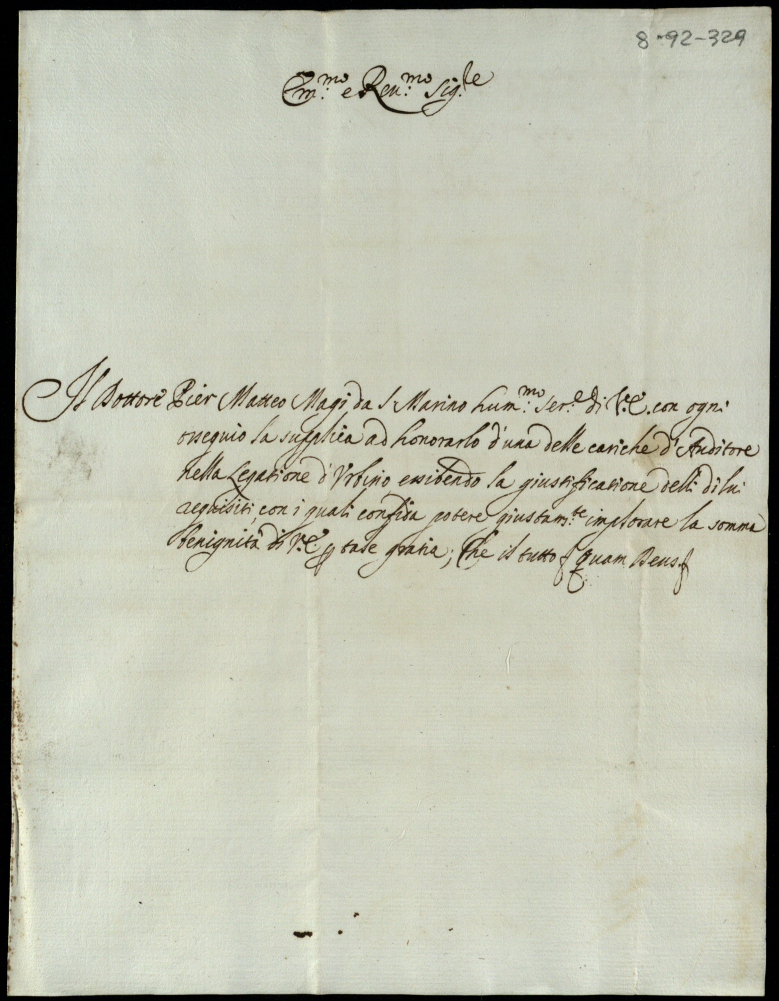 8-92-329
Em.mo e Reu.mo Sig.re
Il Dottore Pier Matteo Magi da S. Marino hum.mo Ser.e di V.E. con ogni
ossequio la supplica ad honorarlo d'una delle cariche d'Auditore
nella Legatione d'Urbino essibendo la giustificatione delli di lui
requisiti, con i quali confida potere giustam.te implorare la somma
benignità di V.E. p tale gratia; Che il tutto Quam Deus